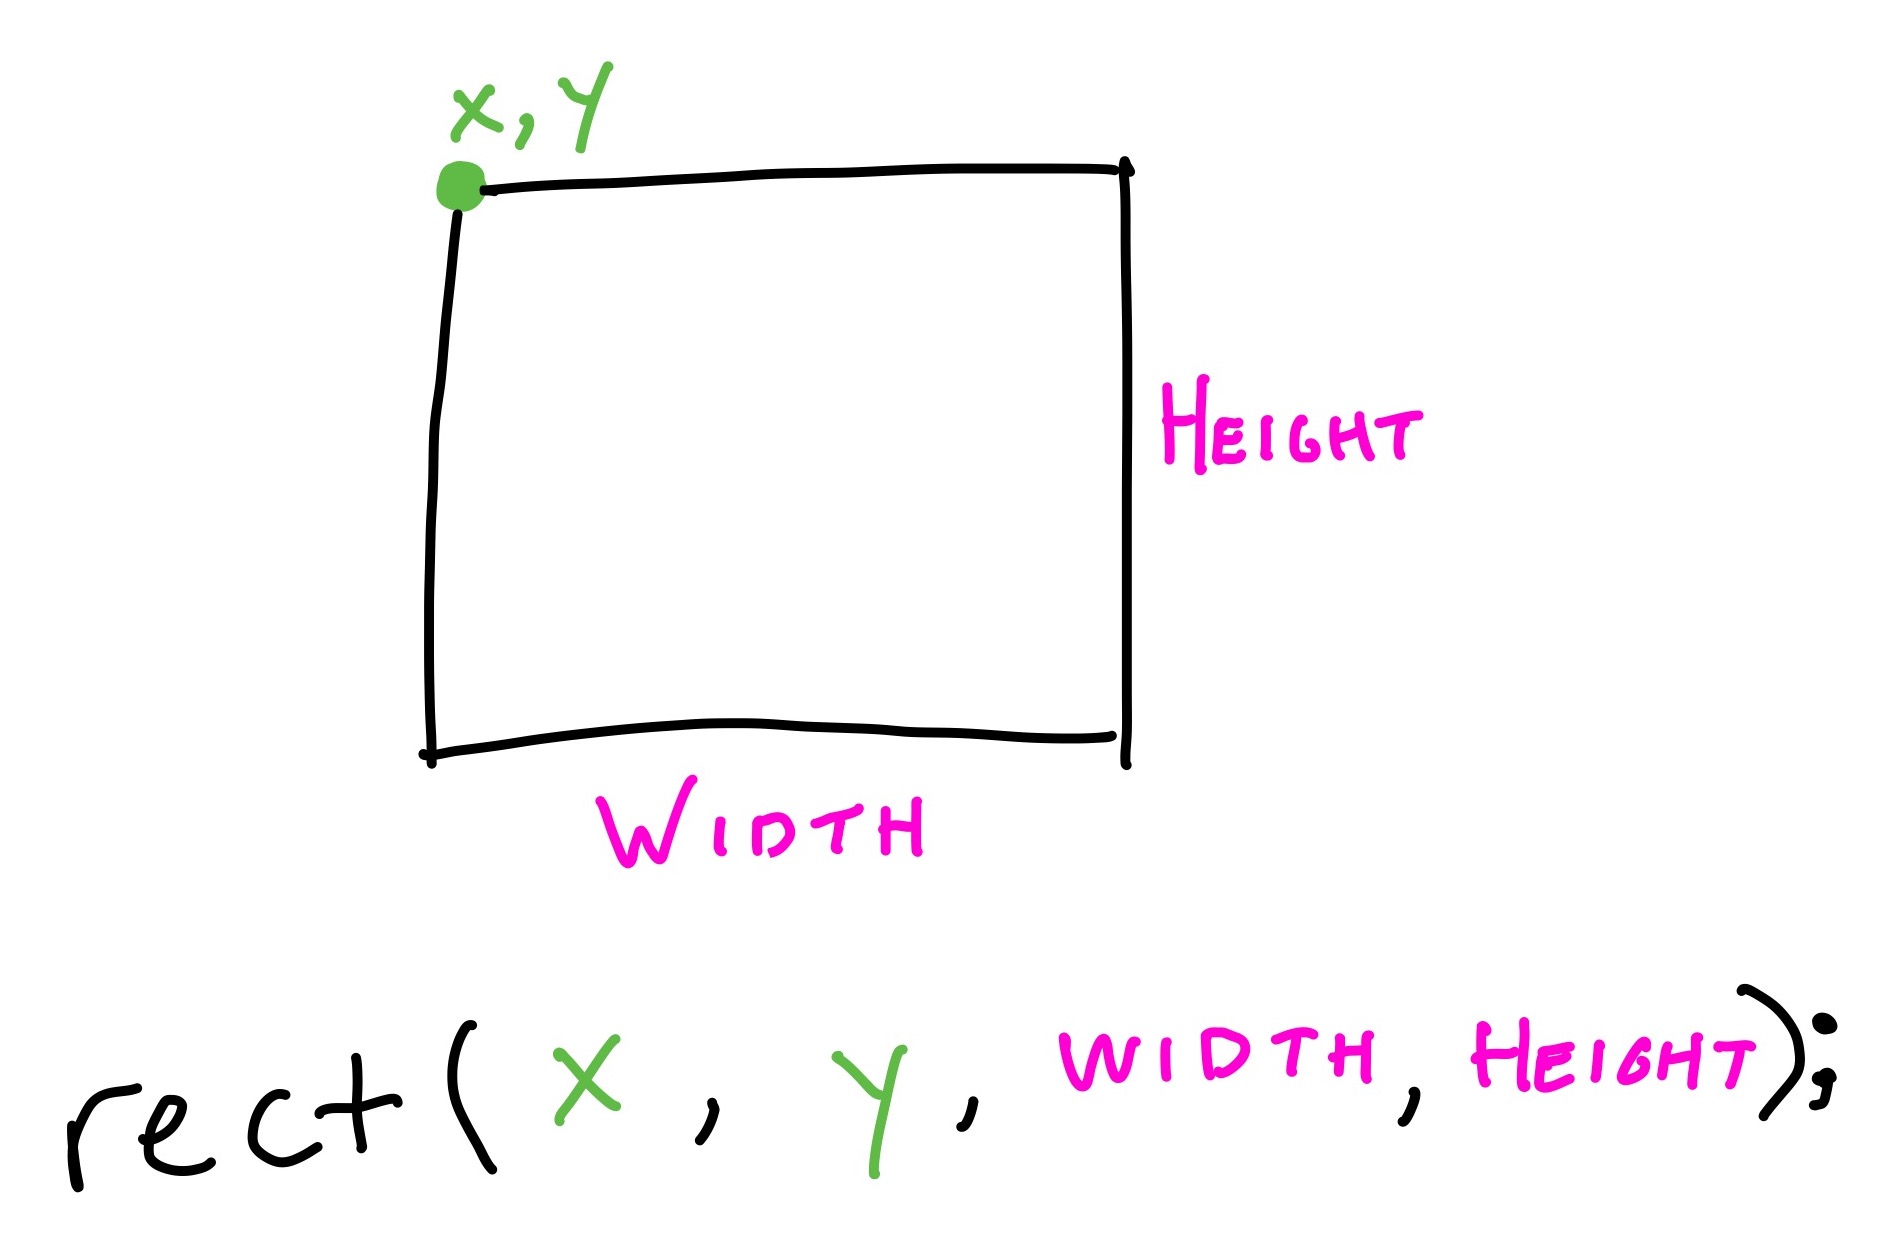 x, y
HEIGHT
WIDTH
rect( X , Y , WIDTH, HEIGHT);